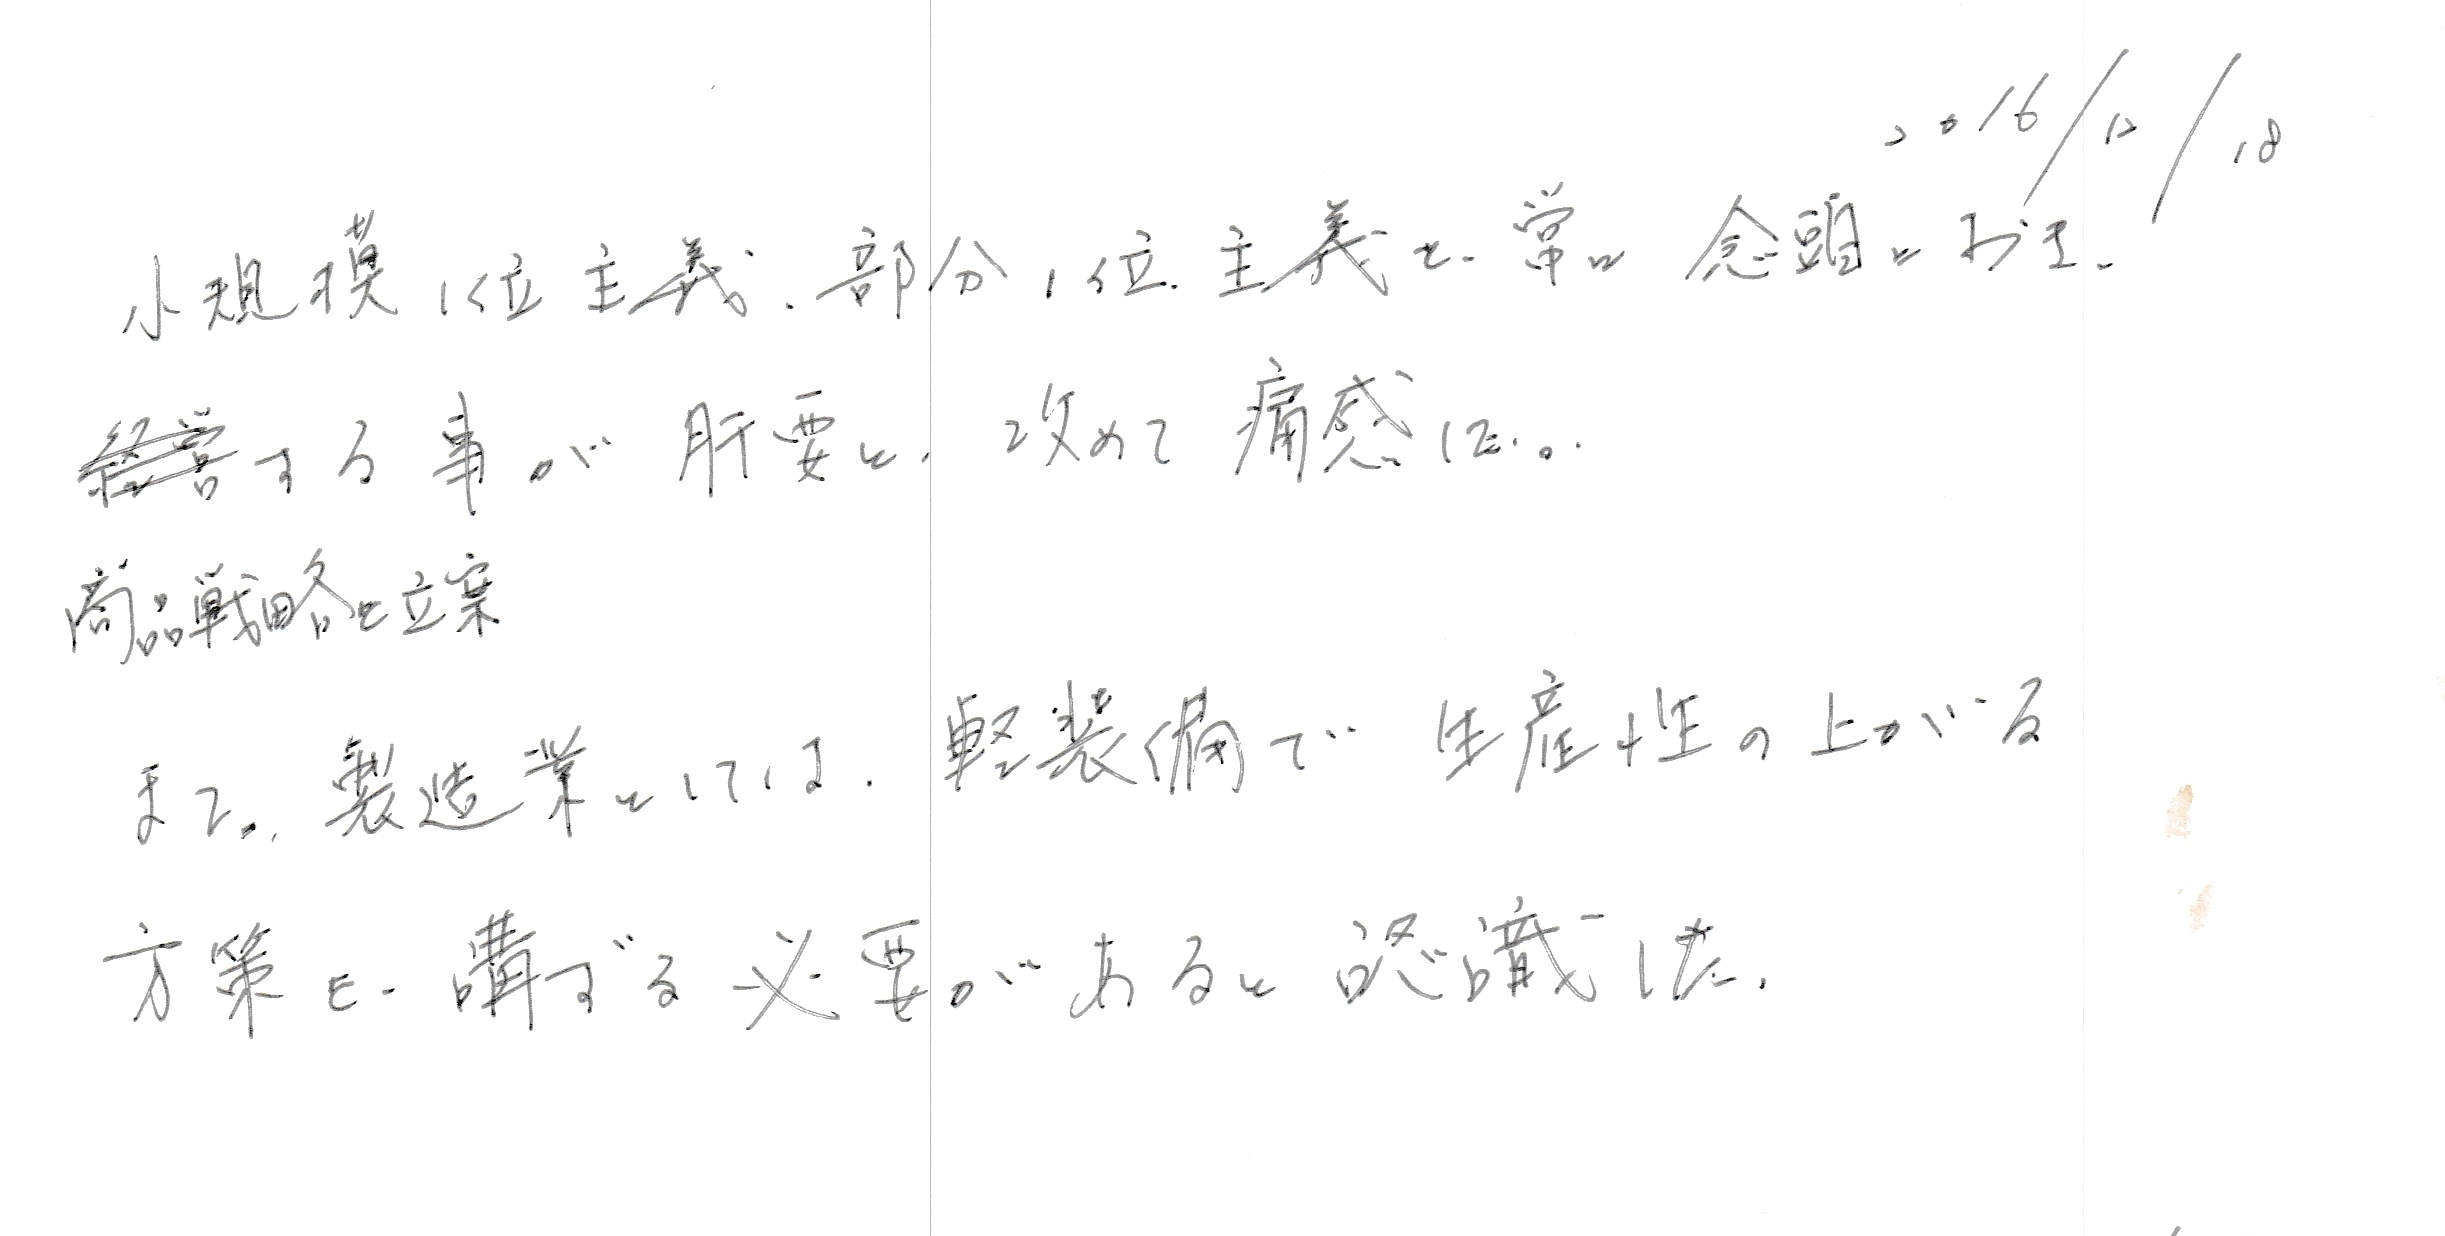 2016/12/18
小規模1位主義、部分1位主義を常に念頭におき、
経営する事が肝要と、改めて痛感した。
商品戦略を立案
また、製造業としては、軽装備で生産性の上がる
方策を講ずる必要があると認識した。